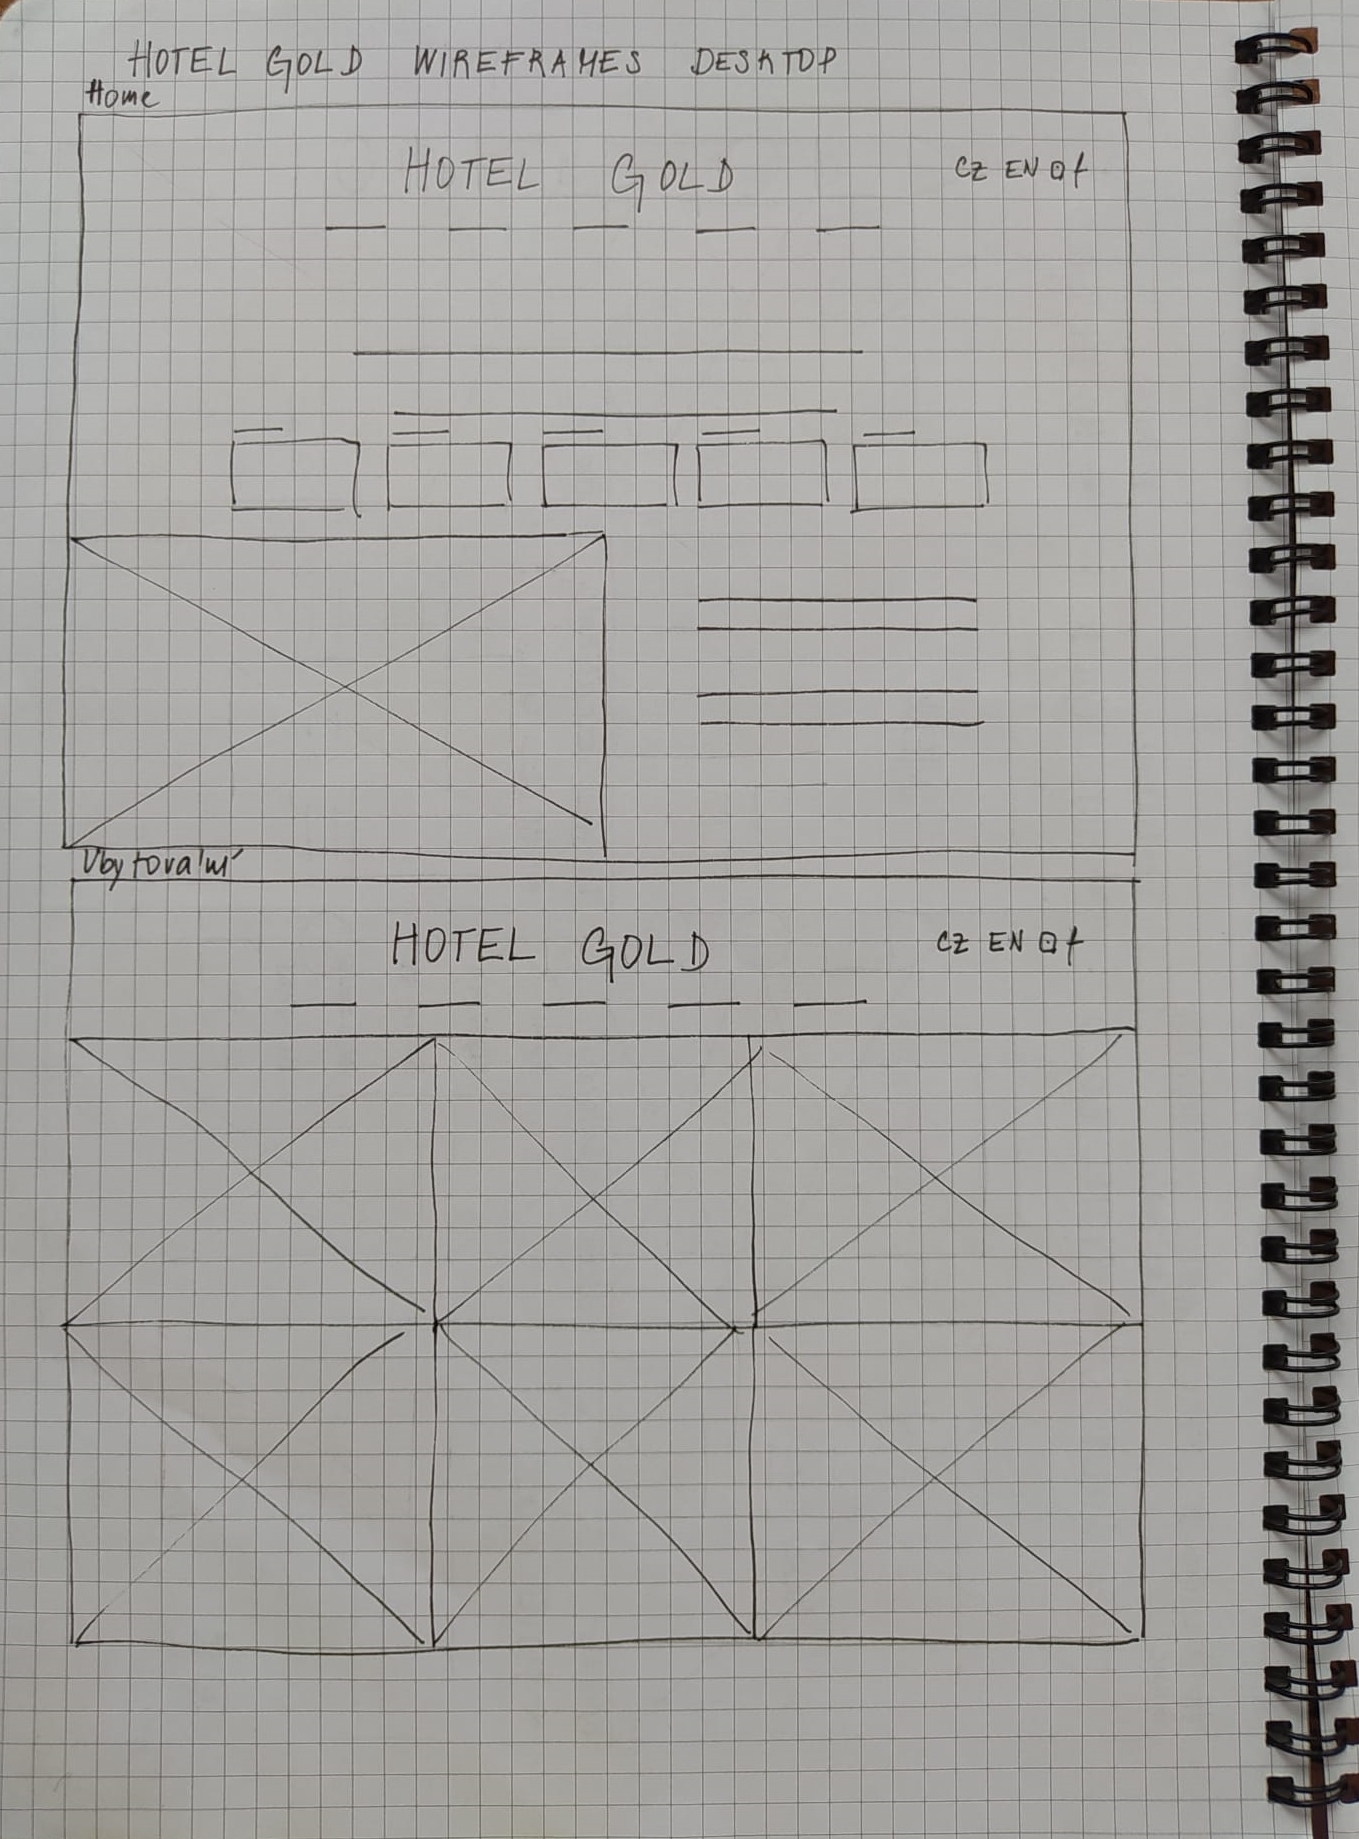 HOTEL GOLD WIREFRAMES DESKTOP
Home
HOTEL GOLD CZ EN f
Ubytování
HOTEL GOLD CZ EN f